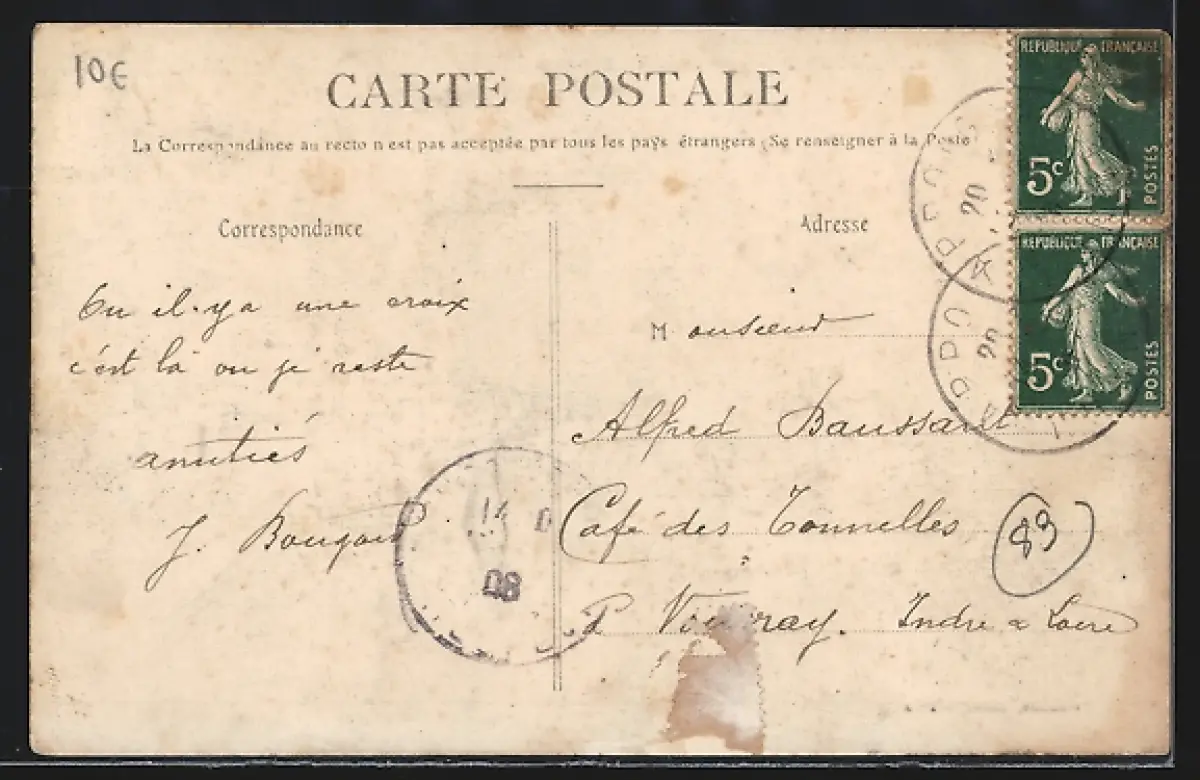 10€
CARTE POSTALE
La Correspondance au recto n'est pas acceptée par tous les pays étrangers (Se renseigner à la Poste
REPUBLIQUE FRANÇAISE
5c
POSTES
REPUBLIQUE FRANÇAISE
5c
POSTES
20
20
Correspondance
Ou il.y a une croix
c'est là ou je reste
amitiés
J.
14 D
08
Adresse
Monsieur
Alfred
Café des Tonnelles
89
Vouvray. Indre & Loire